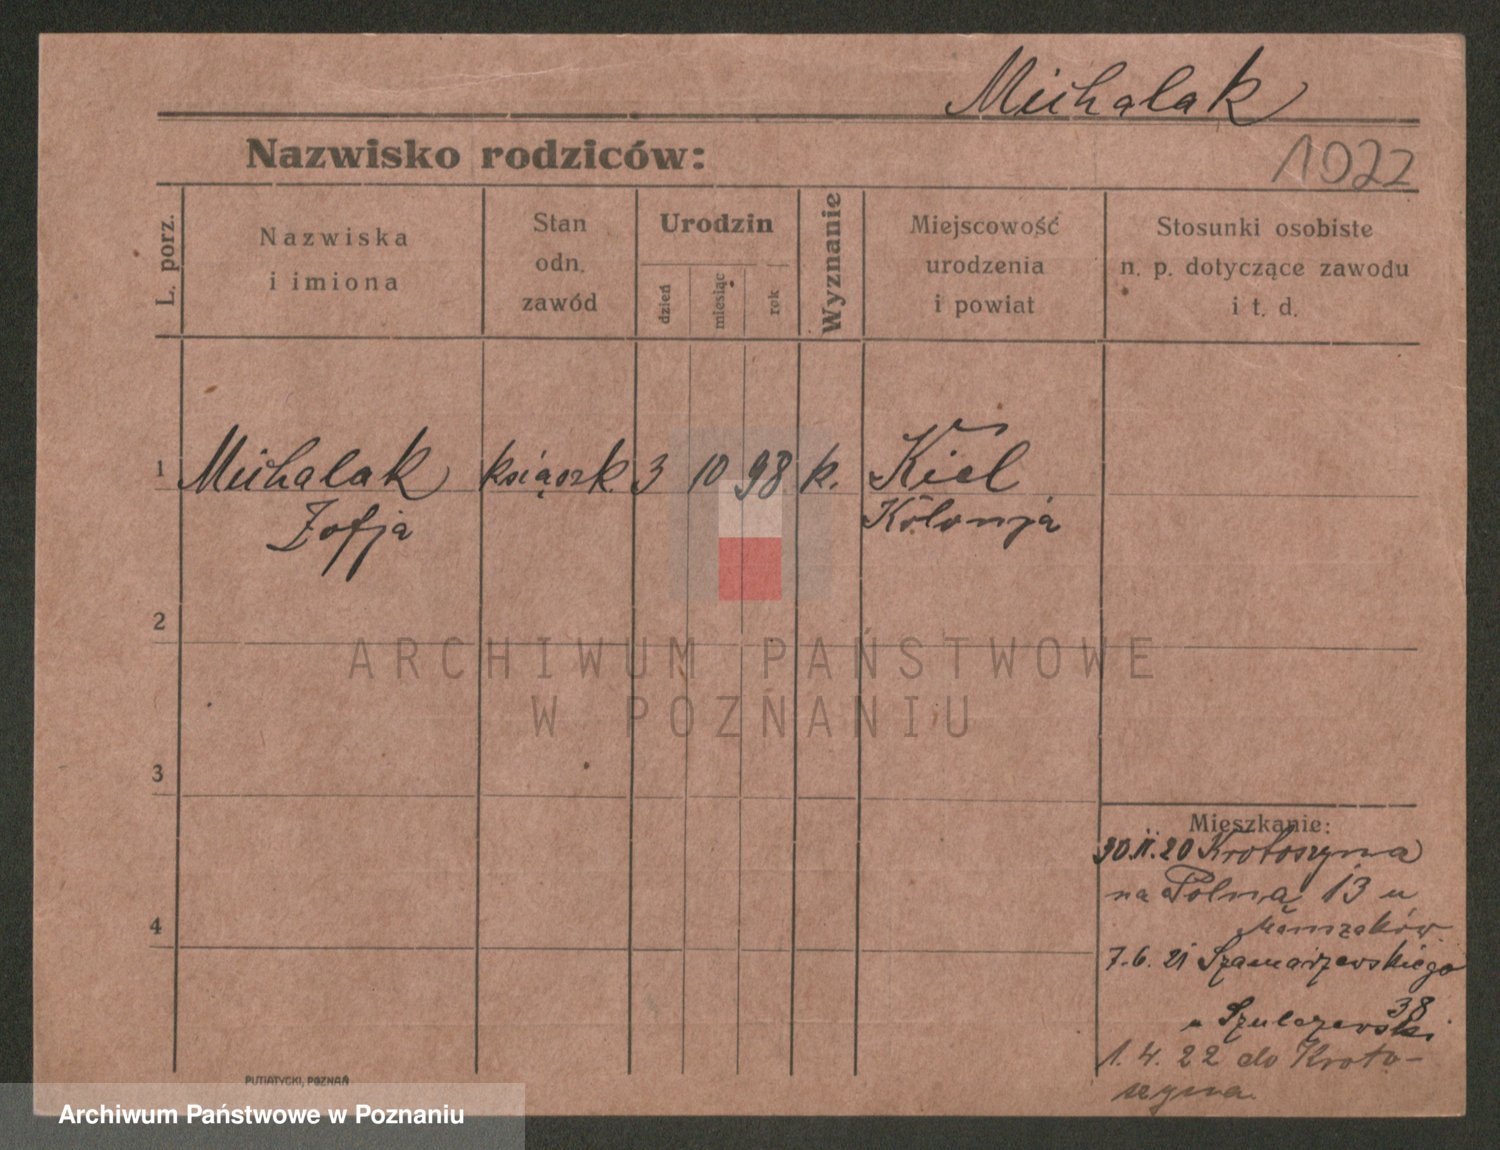 Michalak
Nazwisko rodziców:
1922
L. porz.
Nazwiska
i imiona
Stan
odn.
zawód
Urodzin
dzień
miesiąc
rok
Wyznanie
Miejscowość
urodzenia
i powiat
Stosunki osobiste
n. p. dotyczące zawodu
i t. d.
1 Michalak książk. 3 10 98 k. Kiel
Zofja Kolonja
2
ARCHIWUM PAŃSTWOWE
W POZNANIU
3
Mieszkanie:
20 Krotoszyna
na Polną 13 u
4
7.6.21 Szamarzewskiego
38
u Szulczewski
1.4.22 do Kroto-
szyna.
PUTIATYCKI, POZNAŃ
Archiwum Państwowe w Poznaniu